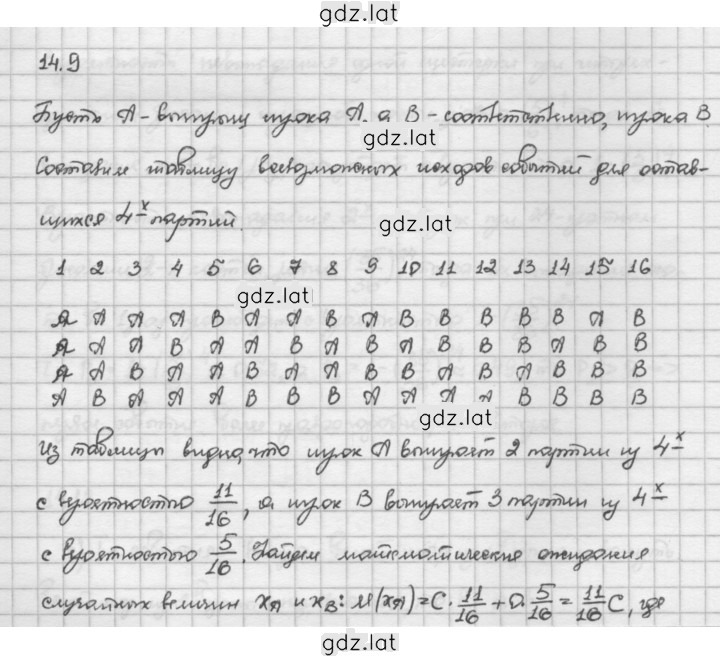 gdz.lat
14.9
Пусть A - выигрыш игрока A, а B - соответственно, игрока B.
gdz.lat
Составим таблицу всевозможных исходов событий для остав-
шихся 4-х партий.
gdz.lat
1 2 3 4 5 6 7 8 9 10 11 12 13 14 15 16
gdz.lat
A A A A B A A B A B B B B B A B
A A A B A A B A B A B B B A B B
A A B A A B A A B B A B A B B B
A B A A A B B B A A A A B B B B
gdz.lat
Из таблицы видно, что игрок A выиграет 2 партии из 4-х
с вероятностью 11/16, а игрок B выиграет 3 партии из 4-х
с вероятностью 5/16. Найдем математические ожидания
случайных величин x_A и x_B: M(x_A) = C · 11/16 + 0 · 5/16 = 11/16 C, где
gdz.lat